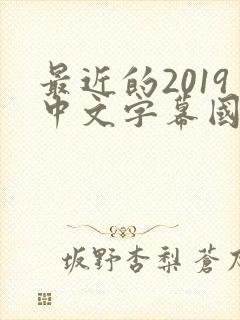 最近的2019
中文字幕國
坂野杏梨 蒼